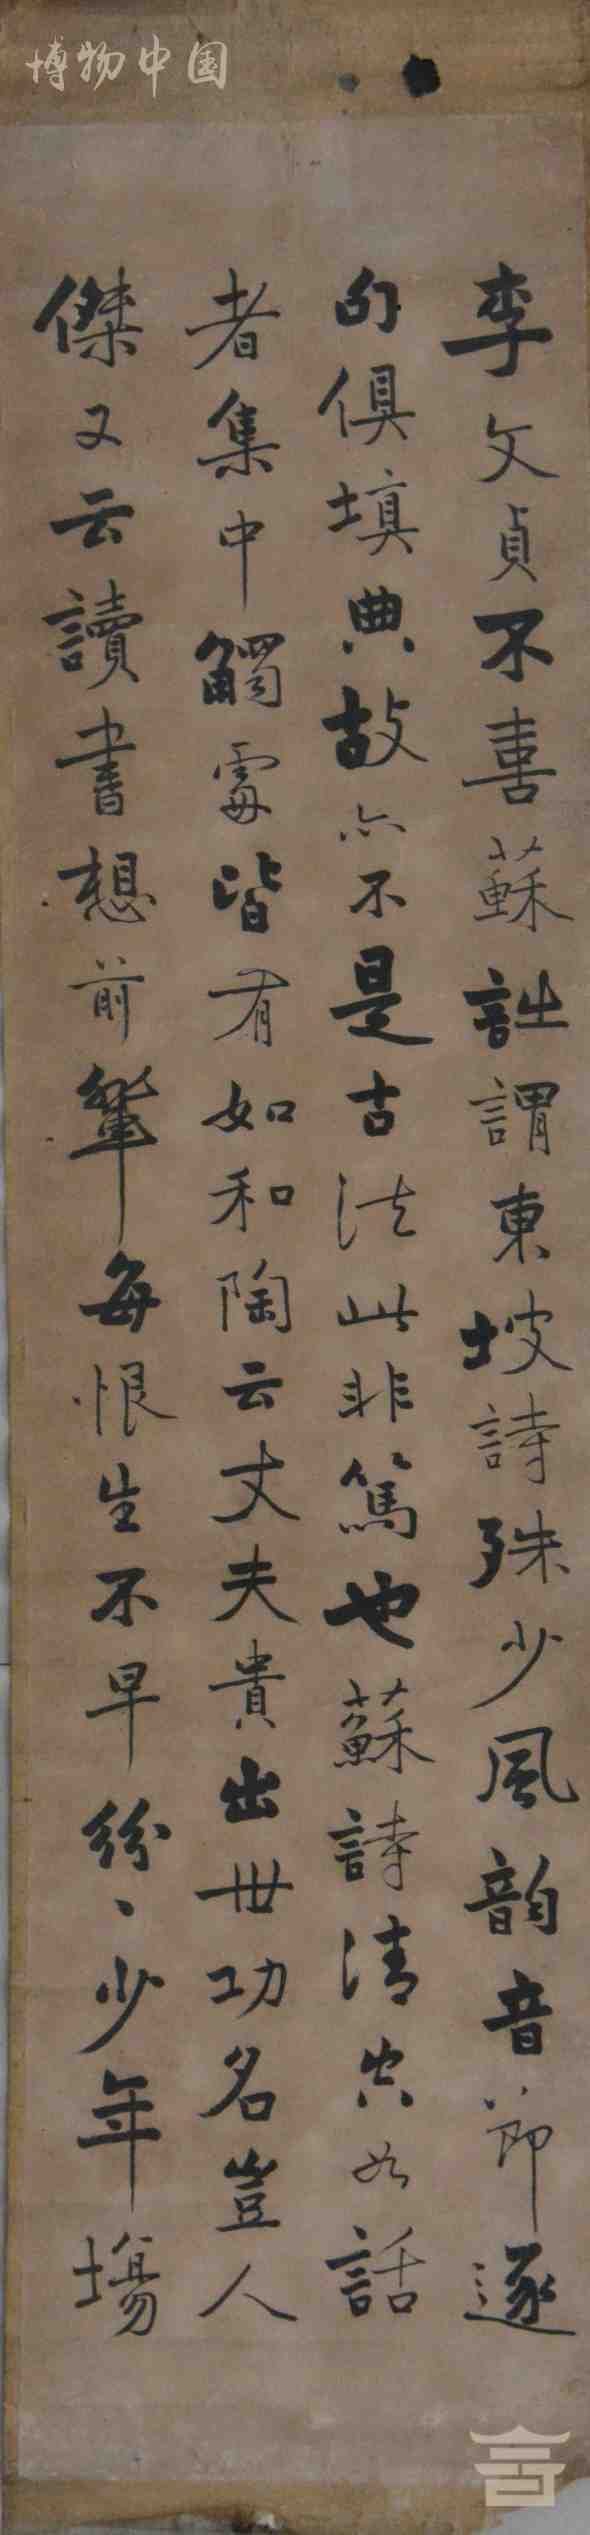 博物中国
李文貞不喜蘇詩謂東坡詩殊少風韵音節逐
句俱填典故亦不是古法此非篤也蘇詩清空如話
者集中觸處皆有如和陶云丈夫貴出世功名豈人
傑又云讀書想前輩每恨生不早紛〻少年場